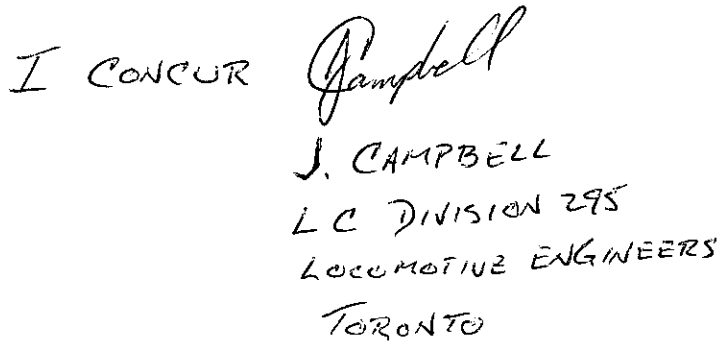 I CONCUR JCampbell
J. CAMPBELL
LC DIVISION 295
LOCOMOTIVE ENGINEERS
TORONTO